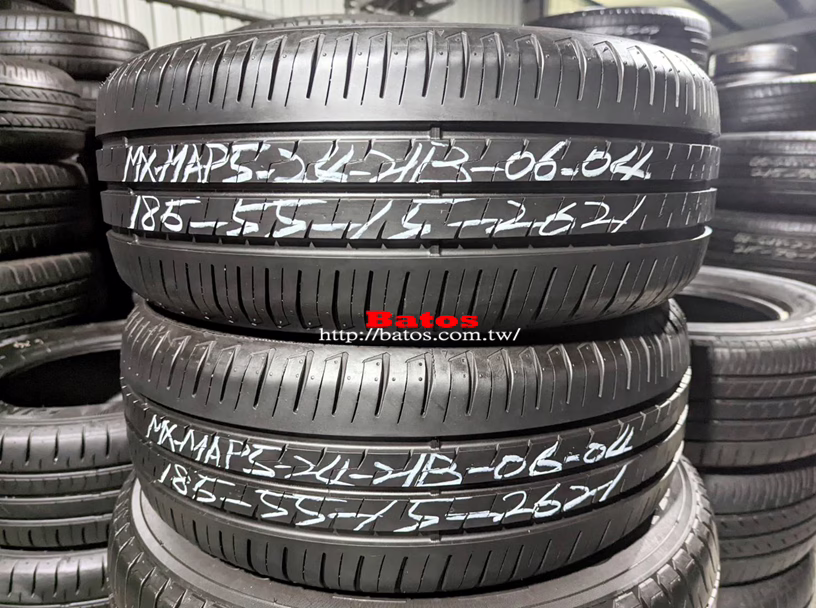 MX-MAP5-24-21B-06-04
185-55-15-2621
Batos
http://batos.com.tw/
MX-MAP5-24-21B-06-04
185-55-15-2621